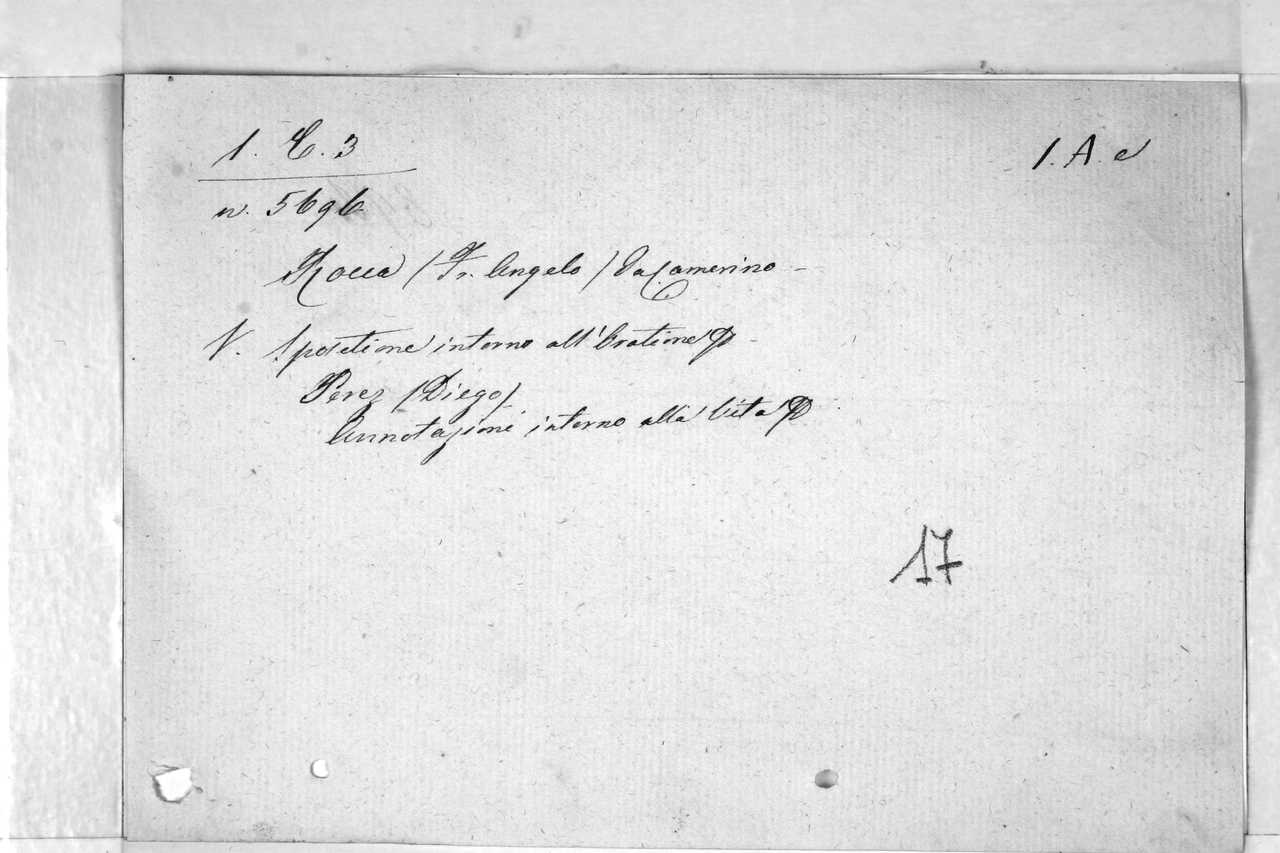 1. C. 3
1. A. e
n. 5696
Rocca (Fr. Angelo) da Camerino -
V. Spositione intorno all'Oratione
Perez (Diego)
Annotazioni intorno alla Vita
17